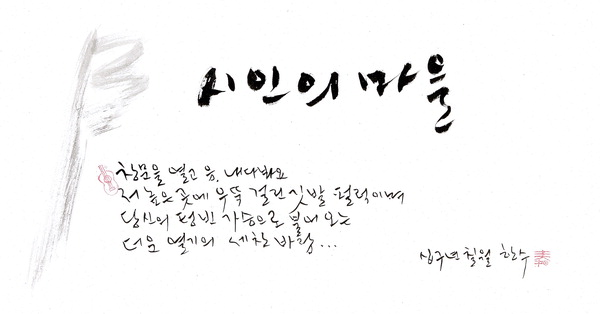 시인의 마을
창문을 열고 음, 내다봐요
저 높은 곳에 우뚝 걸린 깃발 펄럭이며
당신의 텅빈 가슴으로 불어 오는
더운 열기의 세찬 바람...
십구년 칠월 한수